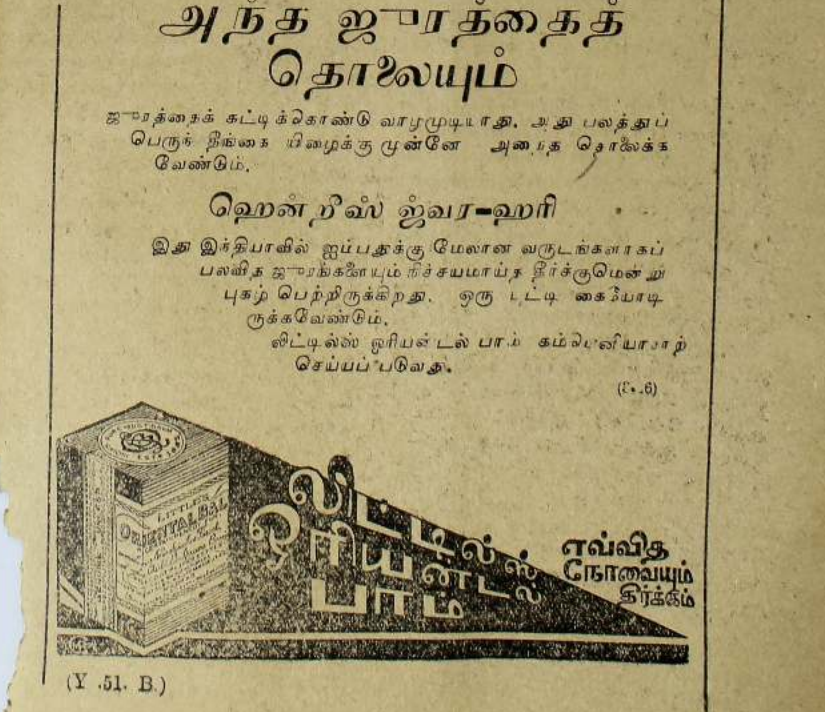 அந்த ஜுரத்தைத்
தொலையும்
ஜுரத்தைக் கட்டிக்கொண்டு வாழமுடியாது. அது பலத்துப்
பெருந் தீங்கை யிழைக்கு முன்னே அதைத் தொலைக்க
வேண்டும்.
ஹென்றீஸ் ஜ்வர-ஹரி
இது இந்தியாவில் ஐம்பதுக்கு மேலான வருடங்களாகப்
பலவித ஜுரங்களையும் நிச்சயமாய்த் தீர்க்குமென்று
புகழ் பெற்றிருக்கிறது. ஒரு புட்டி கையோடி
ருக்கவேண்டும்.
லிட்டில்ஸ் ஓரியன்டல் பாம் கம்பெனியாராற்
செய்யப்படுவது.
LITTLE'S
ORIENTAL BAL
லிட்டில்ஸ்
ஓரியன்டல்
பாம்
எவ்வித
நோவையும்
தீர்க்கும்
(Y .51. B.)